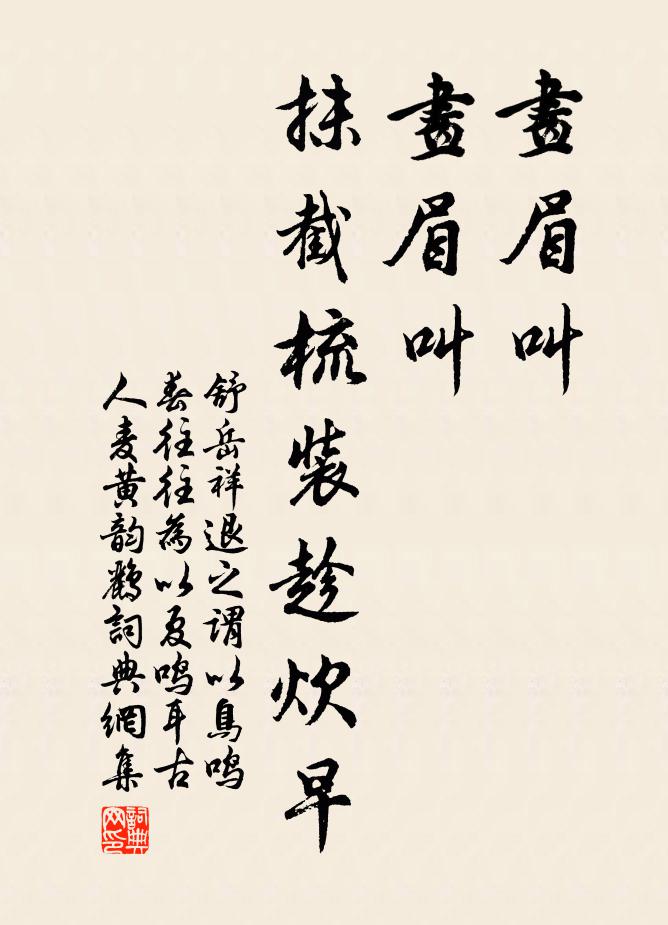 畫眉叫
畫眉叫
抹截梳裝趁炊早
舒岳祥退之謂以鳥鳴
春往往為以夏鳴耳古
人麦黃韵鸝詞典網集
詞典網印